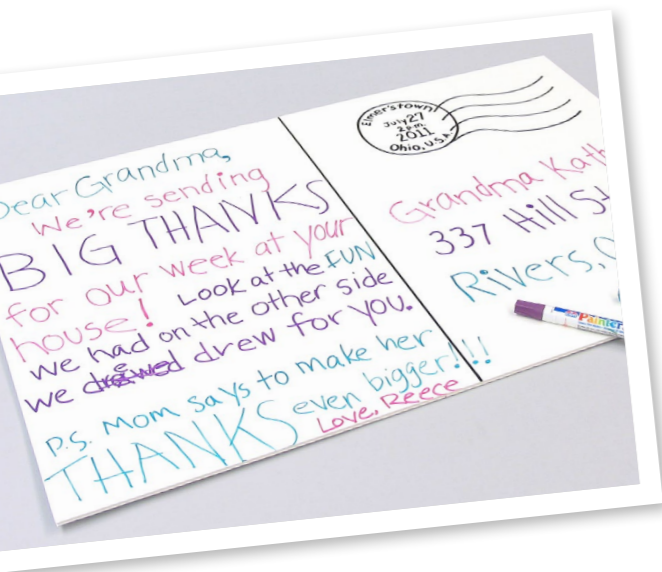 Dear Grandma,
We're sending
BIG THANKS
for our week at your
house! Look at the FUN
we had on the other side
we drewed drew for you.
P.S. Mom says to make her
THANKS even bigger!!!
Love, Reece
Elmer'stown!
July 27
2 p.m.
2011
Ohio, U.S.A.
Grandma Kath
337 Hill St
Rivers, O
Painter